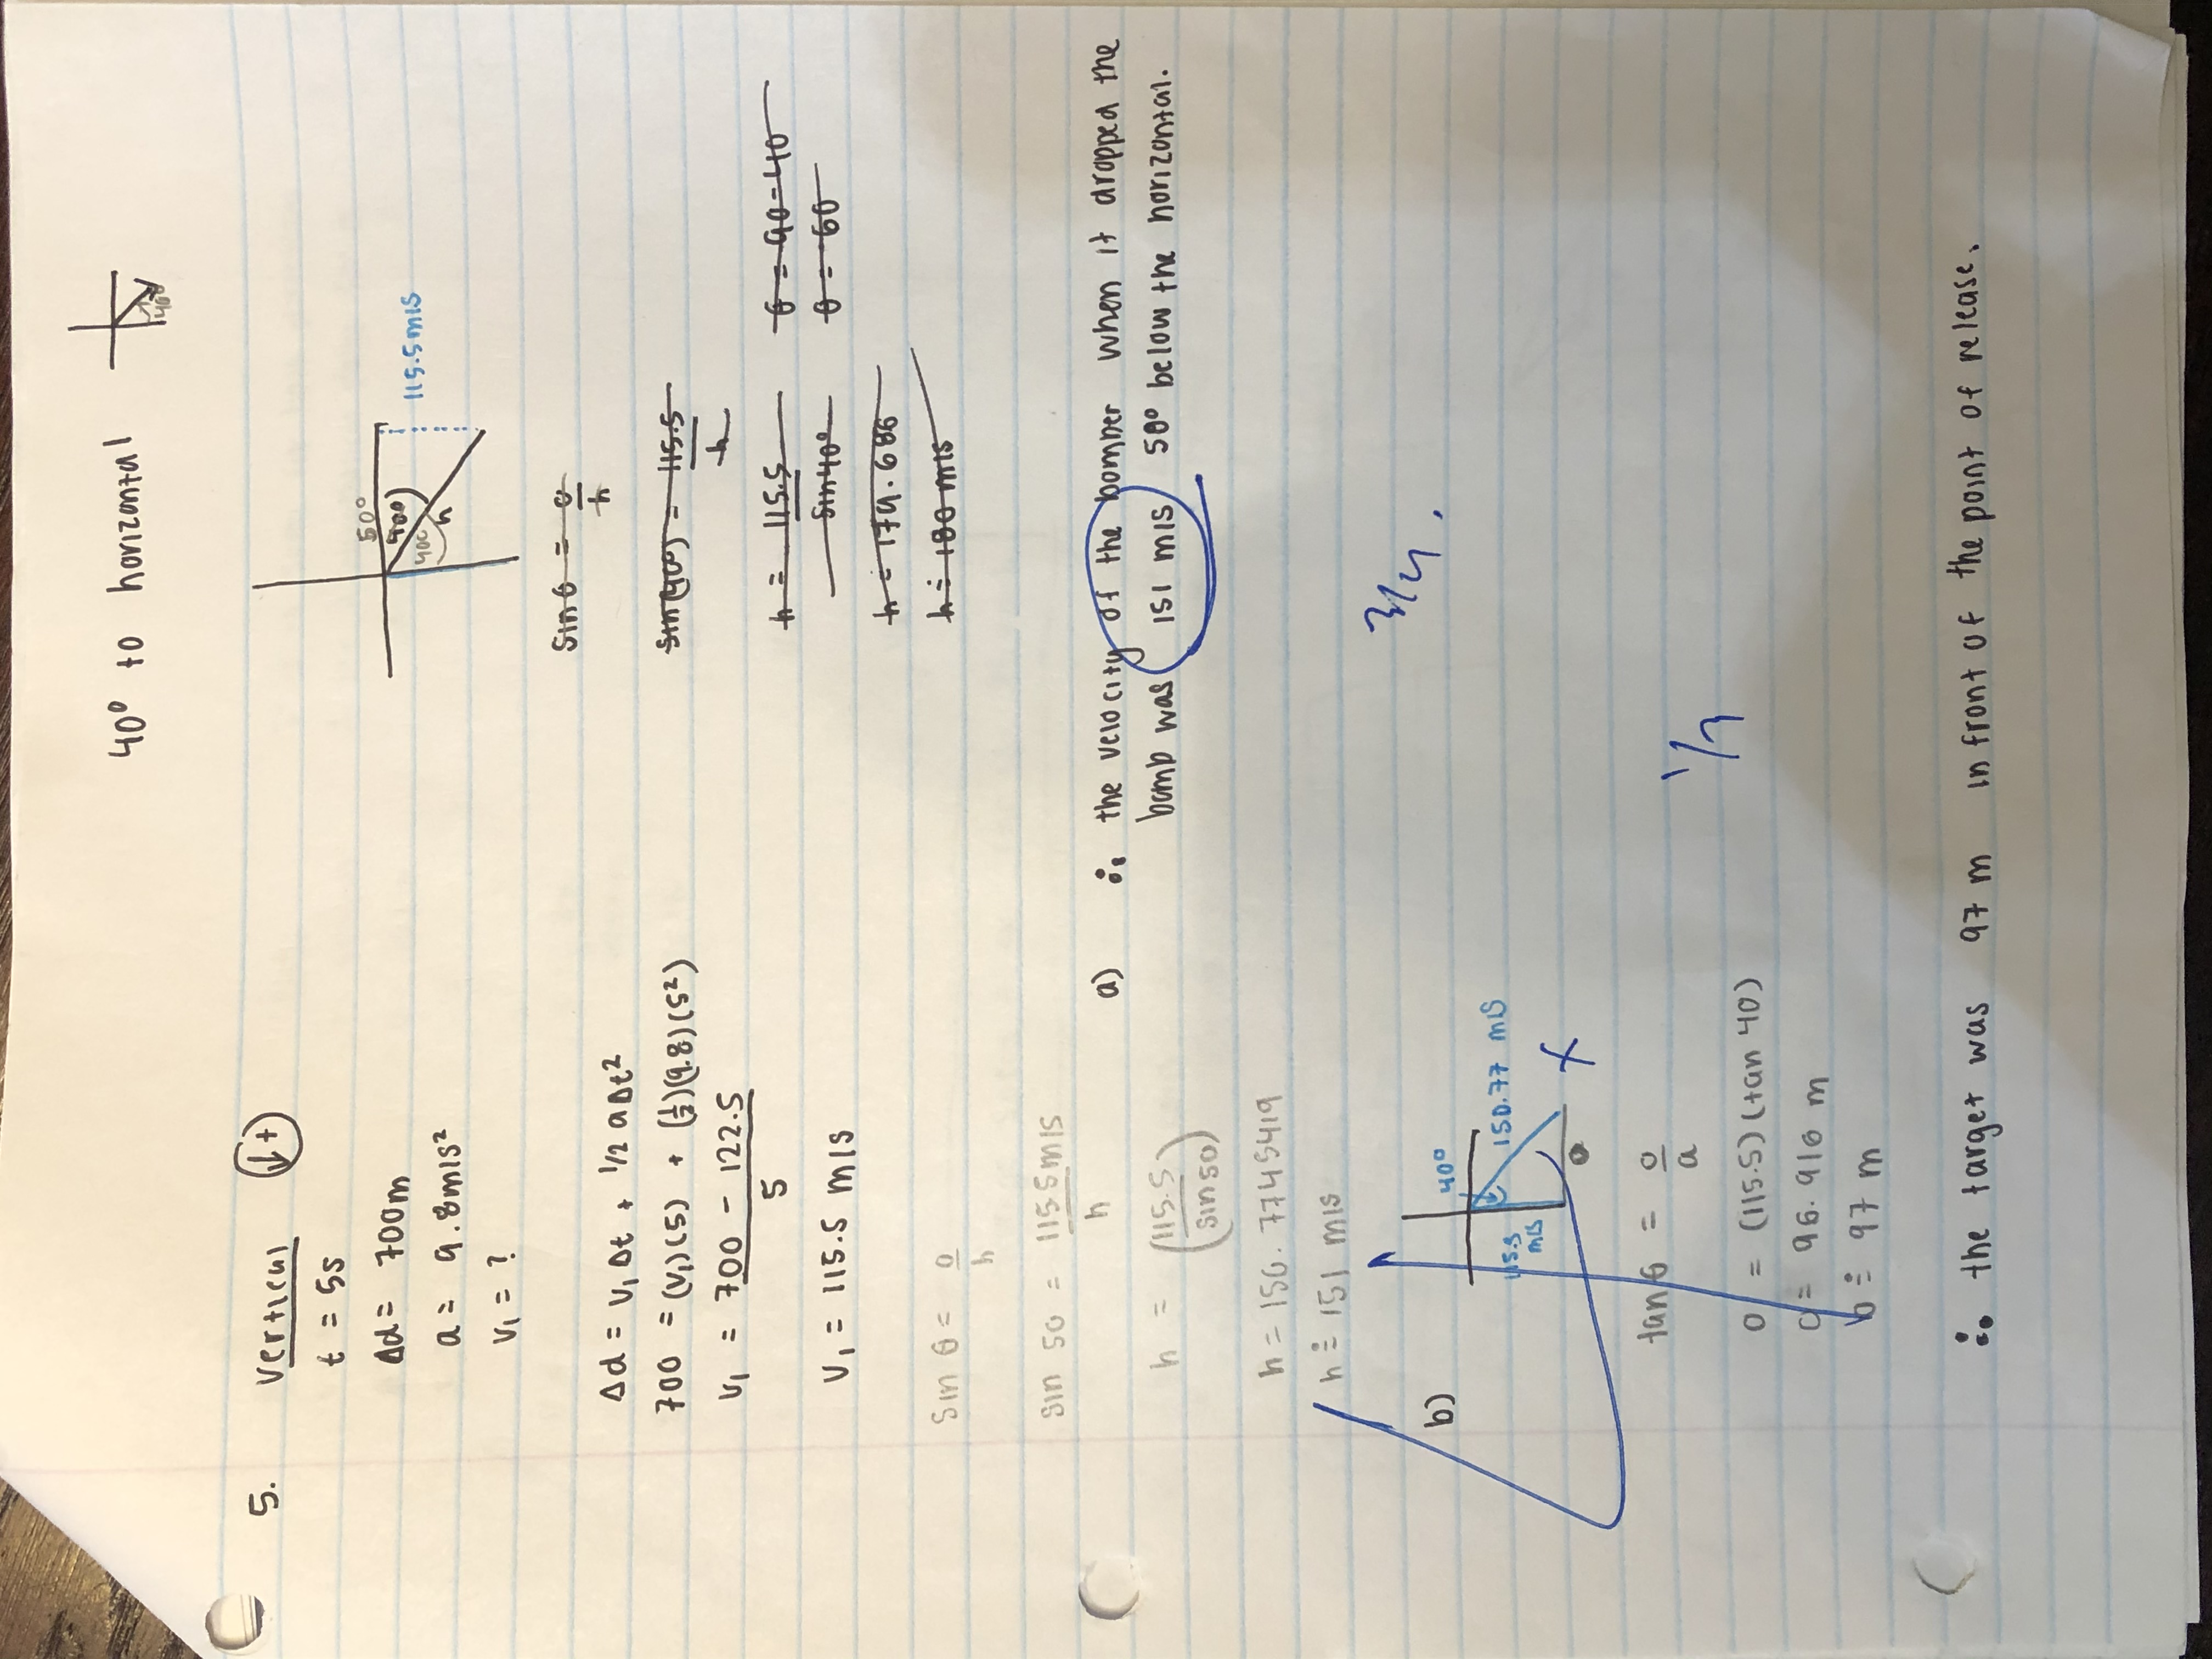 40° to horizontal
40°
5. vertical ↓+
t = 5s
Δd = 700m
a = 9.8m/s²
v₁ = ?
50°
40°
40°
h
115.5m/s
Δd = v₁Δt + 1/2 aΔt²
700 = (v₁)(5) + (1/2)(9.8)(5²)
v₁ = 700 - 122.5
5
v₁ = 115.5 m/s
sin θ = o
h
sin(40°) = 115.5
h
h = 115.5
sin40°
θ = 90-40
θ = 60
h = 179.686
h ≐ 180 m/s
sin θ = o
h
sin 50 = 115.5m/s
h
h = (115.5
sin50)
h = 150.7745419
h ≐ 151 m/s
a) ∴ the velocity of the bomber when it dropped the
bomb was 151 m/s 50° below the horizontal.
3/4
b)
40°
115.5
m/s
150.77 m/s
x
tan θ = o
a
1/3
o = (115.5)(tan 40)
o = 96.916 m
o ≐ 97 m
∴ the target was 97 m in front of the point of release.